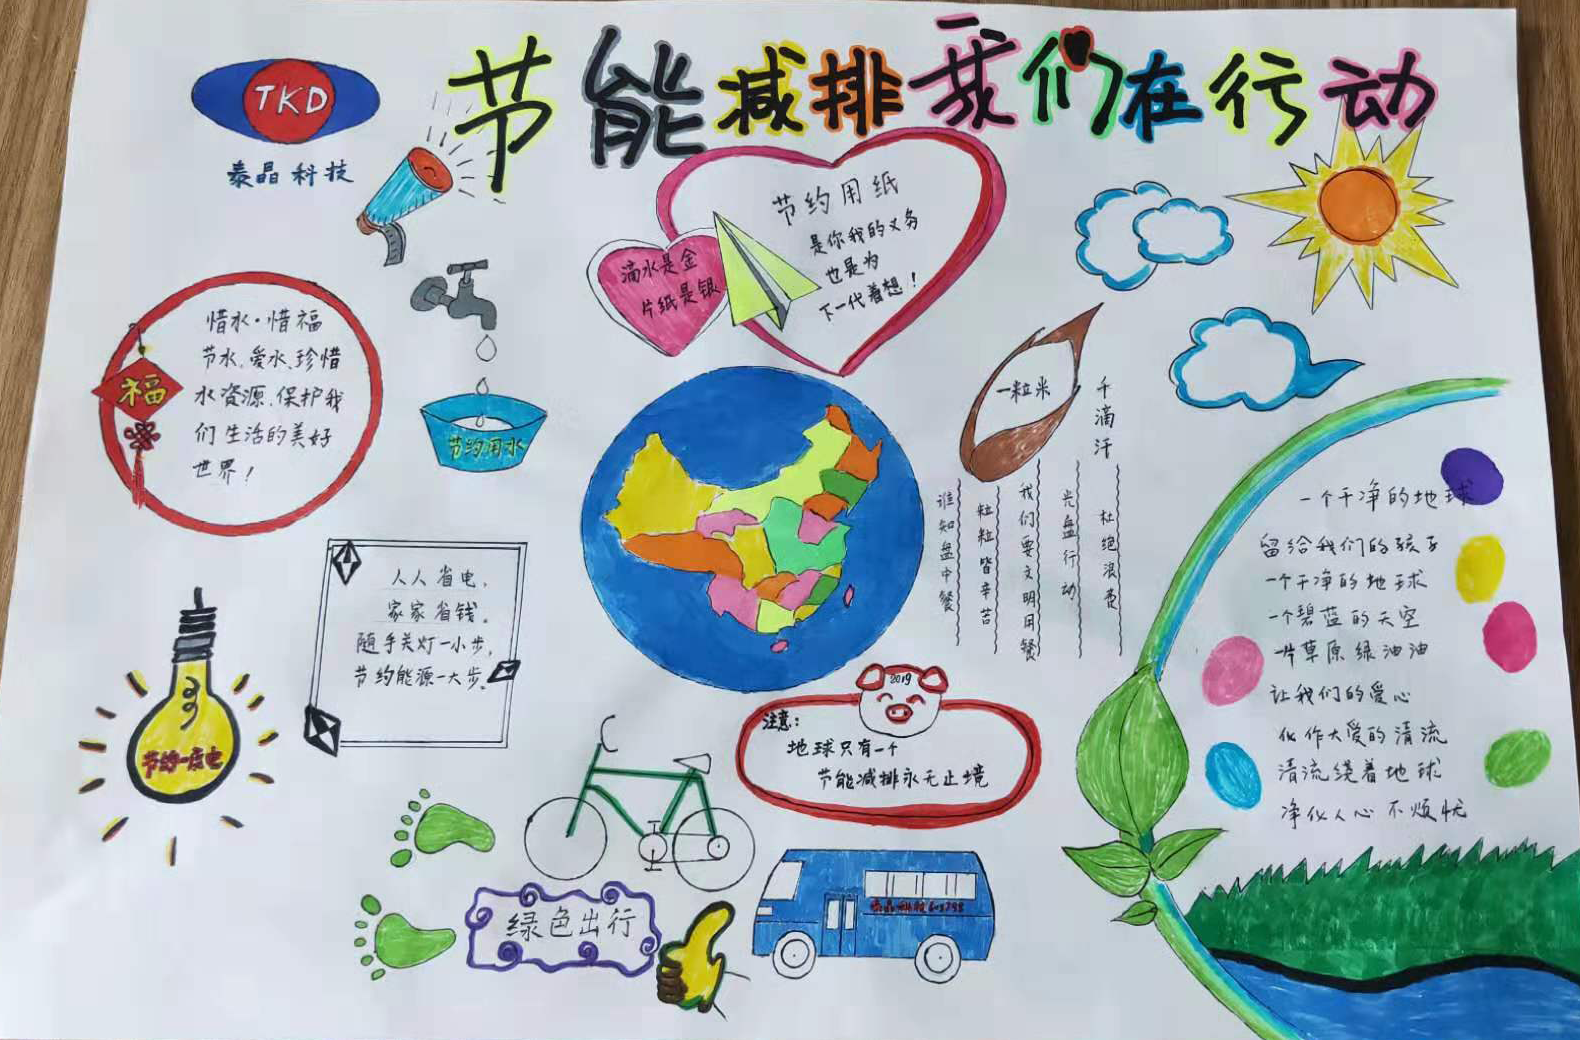 节能减排我们在行动
TKD
泰晶科技
节约用纸
是你我的义务
也是为
下一代着想！
滴水是金
片纸是银
惜水·惜福
节水、爱水、珍惜
水资源、保护我
们生活的美好
世界！
福
节约用水
一粒米
千滴汗
谁知盘中餐
粒粒皆辛苦
我们要文明用餐
光盘行动
杜绝浪费
一个干净的地球
留给我们的孩子
一个干净的地球
一个碧蓝的天空
一片草原绿油油
让我们的爱心
化作大爱的清流
清流绕着地球
净化人心不烦忧
人人省电，
家家省钱。
随手关灯一小步，
节约能源一大步。
节约一度电
2019
注意：
地球只有一个
节能减排永无止境
绿色出行
泰晶科技